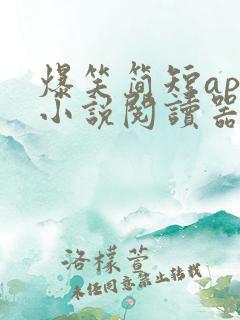 爆笑简短ap
小说閱讀器
洛樣萱
未经同意禁止转载